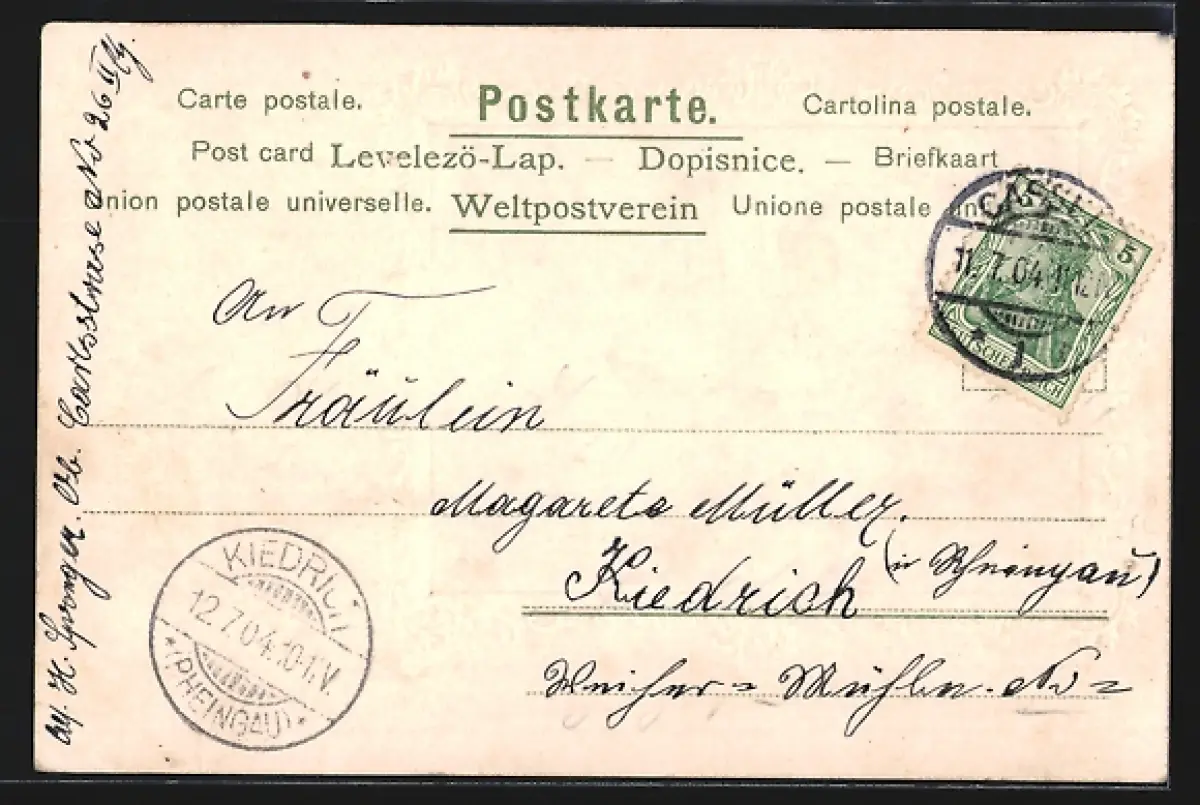 Carte postale. Postkarte. Cartolina postale.
Post card Levelező-Lap. — Dopisnice. — Briefkaart
nion postale universelle. Weltpostverein Unione postale un
CASSEL
11.7.04.11-12
* 1
5
An
Fräulein
Magarete Müller.
Kiedrich (in Rheingau)
Weiher = Mühle. No =
KIEDRICH
12.7.04.10-11.V.
*(RHEINGAU)*
H. Ob. Carlsstrase No 26 II